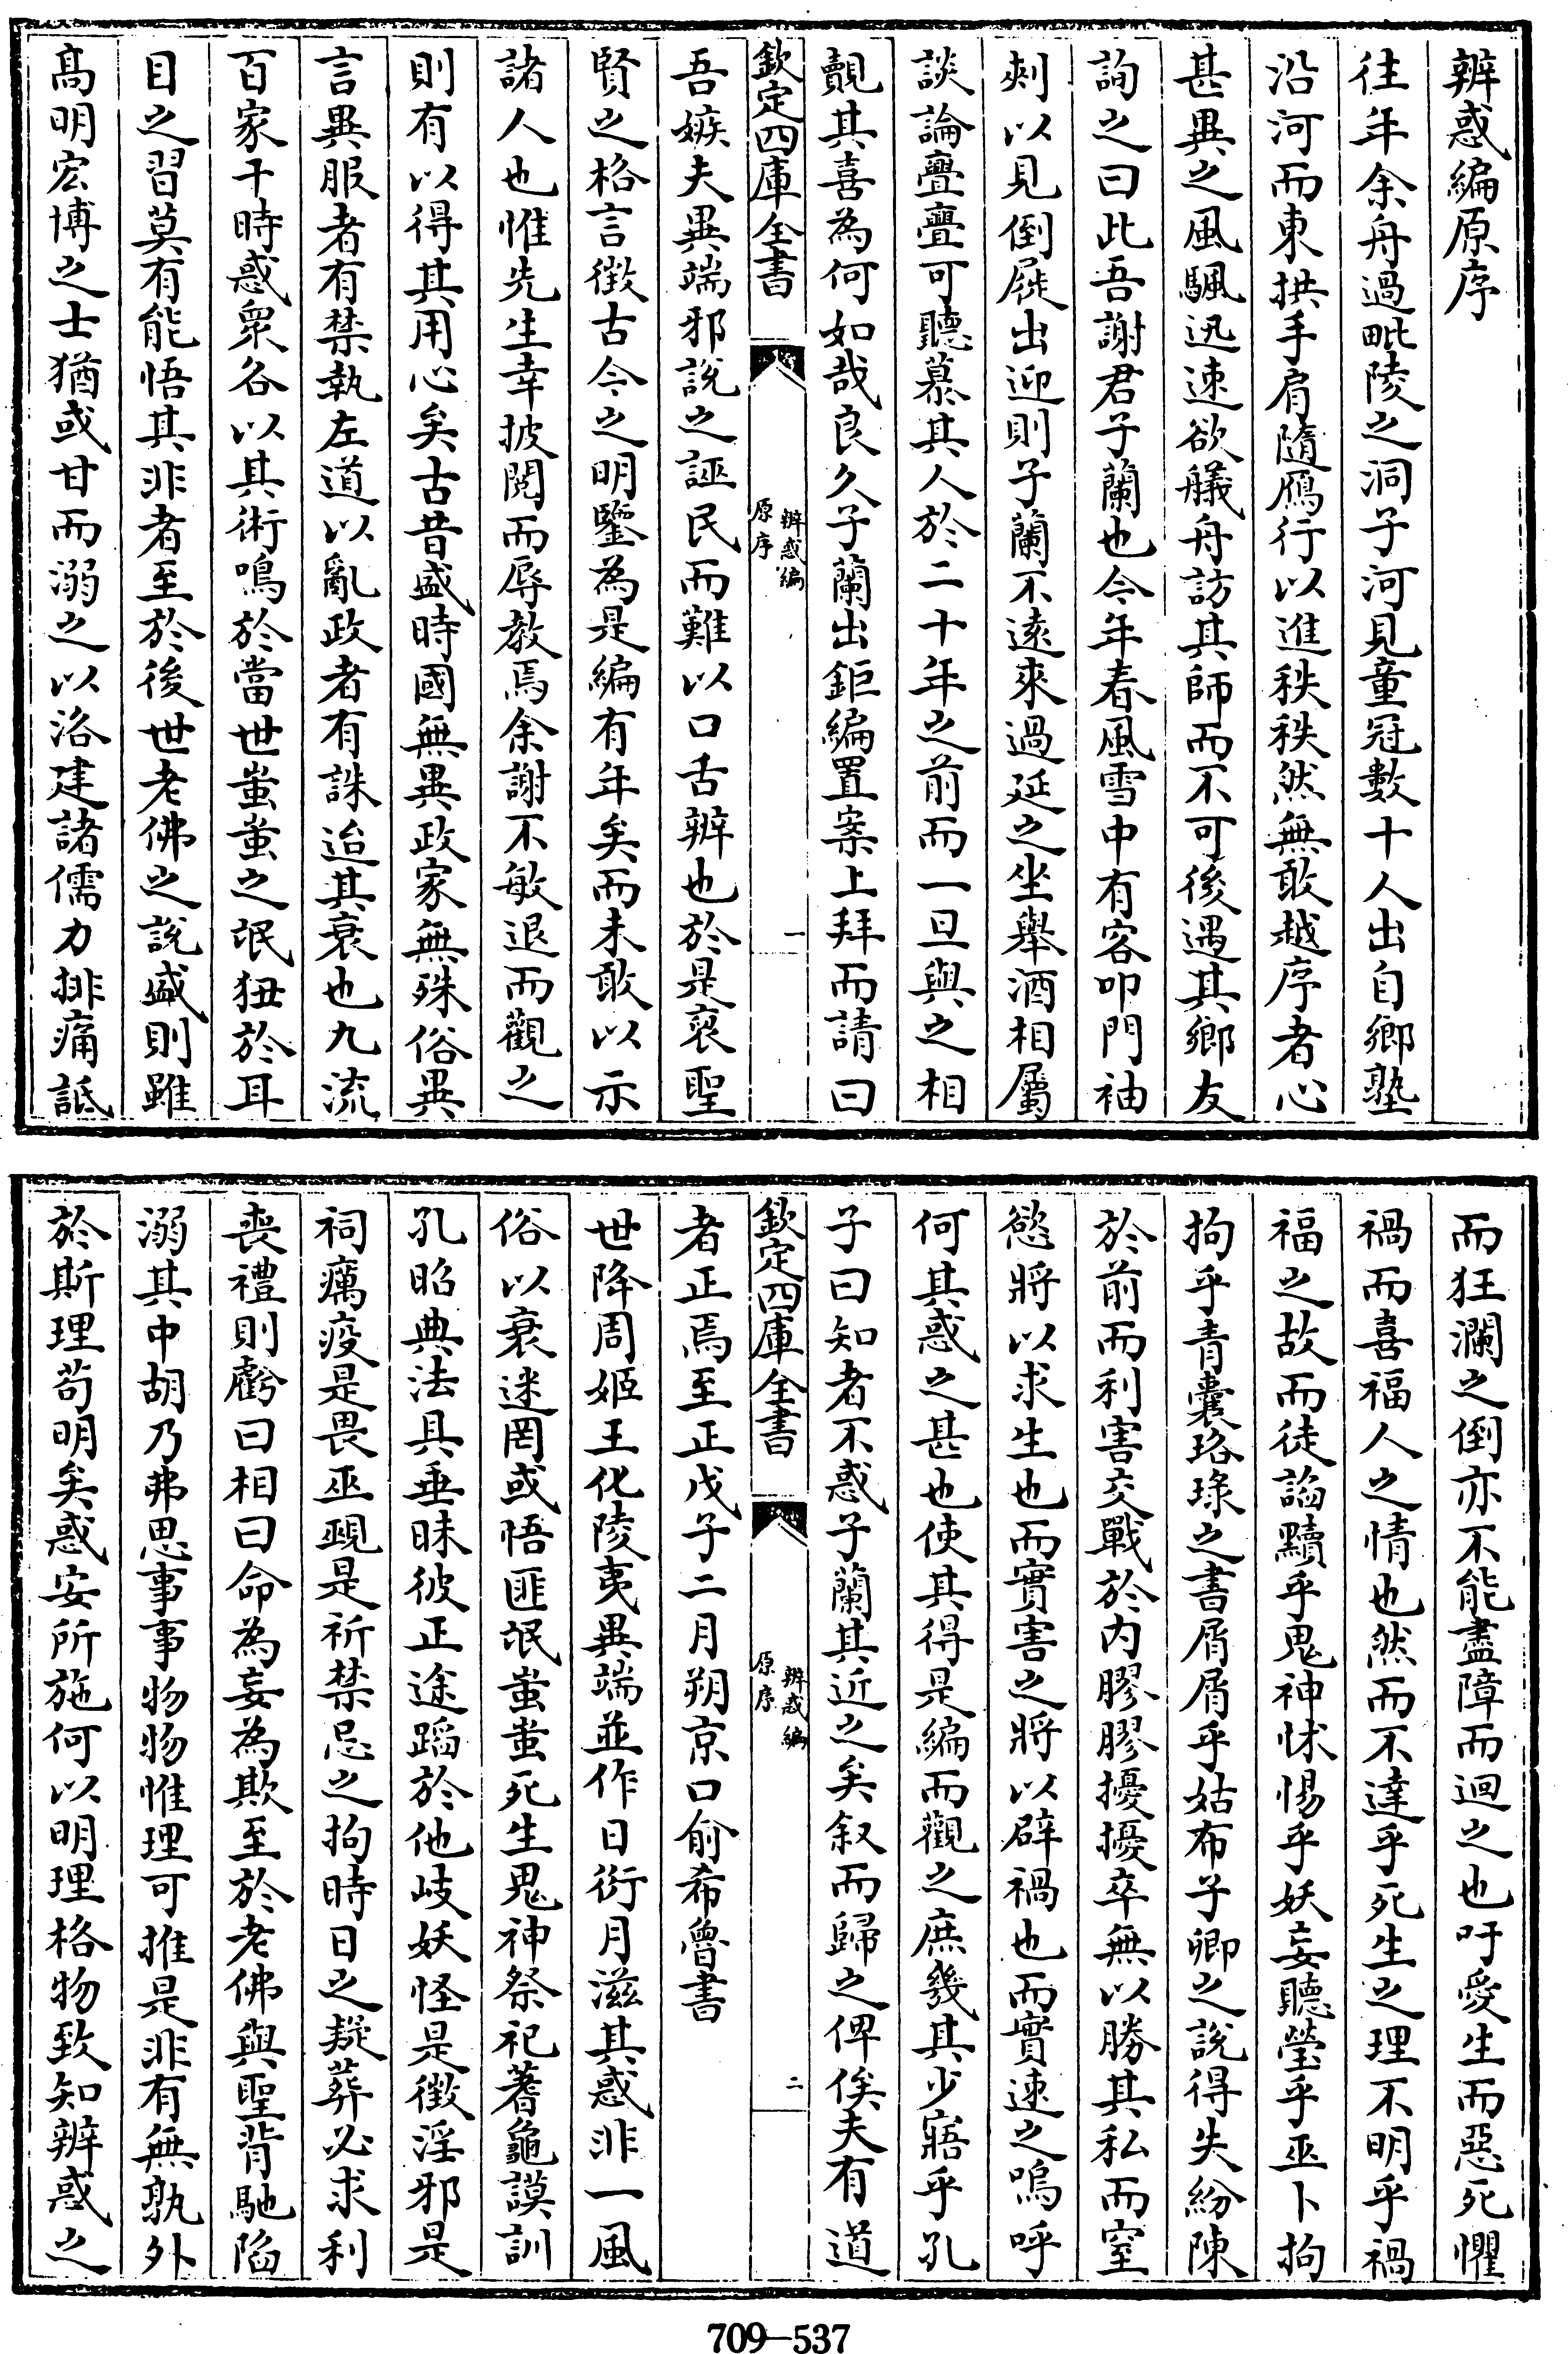 辨惑編原序
往年余舟過毗陵之洞子河見童冠數十人出自鄉塾
沿河而東拱手肩隨鴈行以進秩秩然無敢越序者心
甚異之風颿迅速欲艤舟訪其師而不可後遇其鄉友
詢之曰此吾謝君子蘭也今年春風雪中有客叩門袖
刺以見倒屣出迎則子蘭不遠來過延之坐舉酒相屬
談論亹亹可聽慕其人於二十年之前而一旦與之相
覿其喜為何如哉良久子蘭出鉅編置案上拜而請曰
欽定四庫全書
辨惑編
原序
一
吾嫉夫異端邪說之誣民而難以口舌辨也於是裒聖
賢之格言徵古今之明鑒為是編有年矣而未敢以示
諸人也惟先生幸披閱而辱教焉余謝不敏退而觀之
則有以得其用心矣古昔盛時國無異政家無殊俗異
言異服者有禁執左道以亂政者有誅迨其衰也九流
百家干時惑衆各以其術鳴於當世蚩蚩之氓狃於耳
目之習莫有能悟其非者至於後世老佛之說盛則雖
高明宏博之士猶或甘而溺之以洛建諸儒力排痛詆
而狂瀾之倒亦不能盡障而迴之也吁愛生而惡死懼
禍而喜福人之情也然而不達乎死生之理不明乎禍
福之故而徒諂黷乎鬼神怵惕乎妖妄聽瑩乎巫卜拘
拘乎青囊珞琭之書屑屑乎姑布子卿之說得失紛陳
於前而利害交戰於内膠膠擾擾卒無以勝其私而窒
慾將以求生也而實害之將以辟禍也而實速之嗚呼
何其惑之甚也使其得是編而觀之庶幾其少寤乎孔
子曰知者不惑子蘭其近之矣叙而歸之俾俟夫有道
欽定四庫全書
辨惑編
原序
二
者正焉至正戊子二月朔京口俞希魯書
世降周姬王化陵夷異端並作日衍月滋其惑非一風
俗以衰迷罔或悟匪氓蚩蚩死生鬼神祭祀蓍龜謨訓
孔昭典法具垂昧彼正途蹈於他岐妖怪是徵淫邪是
祠癘疫是畏巫覡是祈禁忌之拘時日之疑葬必求利
喪禮則虧曰相曰命為妄為欺至於老佛與聖背馳陷
溺其中胡乃弗思事事物物惟理可推是非有無孰外
於斯理苟明矣惑安所施何以明理格物致知辨惑之
709—537